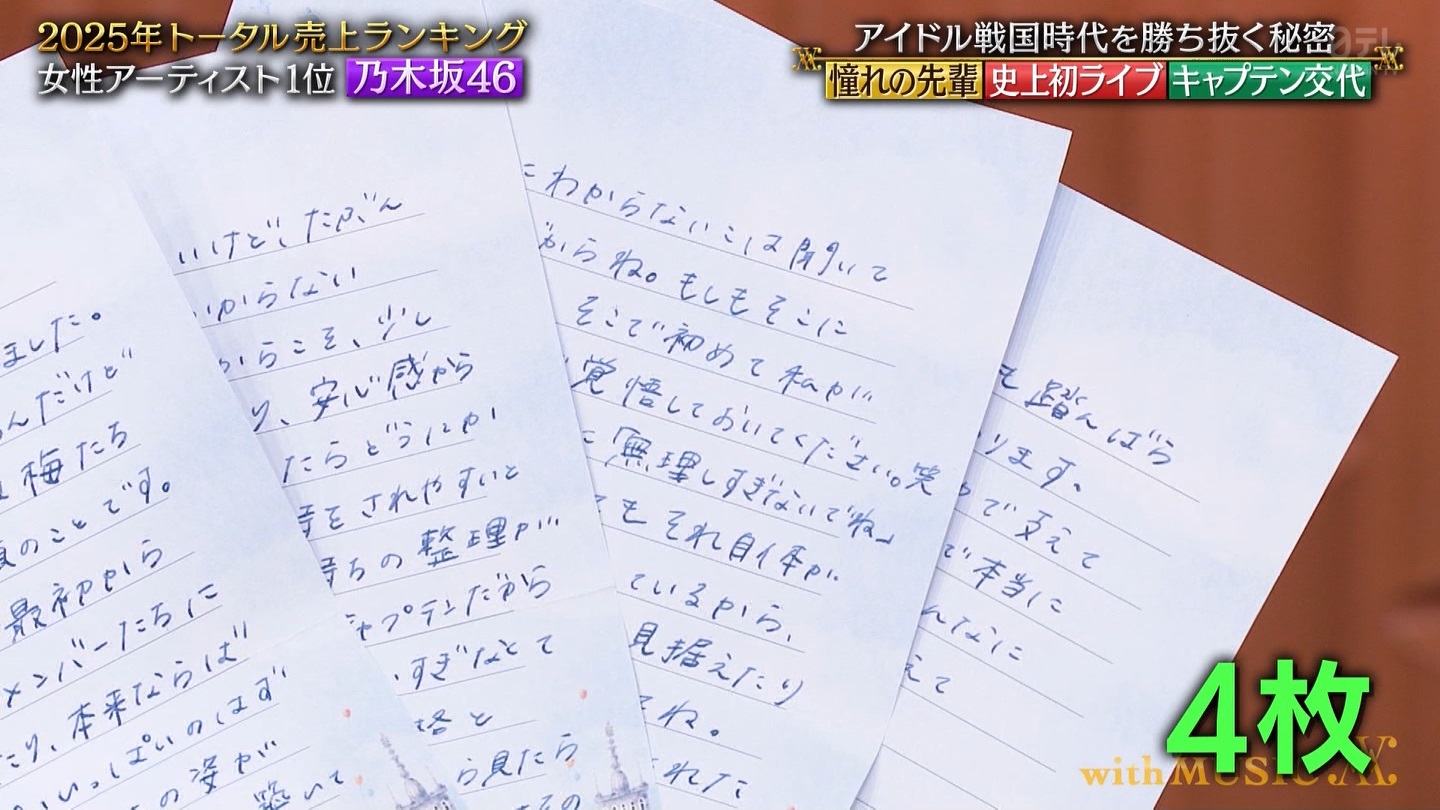 2025年トータル売上ランキング
女性アーティスト1位 乃木坂46
アイドル戦国時代を勝ち抜く秘密
憧れの先輩 史上初ライブ キャプテン交代
日テレ
ました。
んだけど
梅たち
のことです。
最初から
メンバーたちに
たり、本来ならば
いっぱいのはず
の姿が
いけど、たぶん
わからない
からこそ、少し
り、安心感から
たらどうにか
をされやすいと
持ちの整理が
キャプテンだから
すぎなとて
格と
ら見たら
わからないこは聞いて
からね。もしもそこに
そこで初めて私が
覚悟しておいてください。笑
「無理しすぎないでね」
もそれ自体が
ているから、
見据えたり
てね。
れた
も踏んばら
ります、
で支えて
で本当に
んなに
えて
4枚
with MUSIC